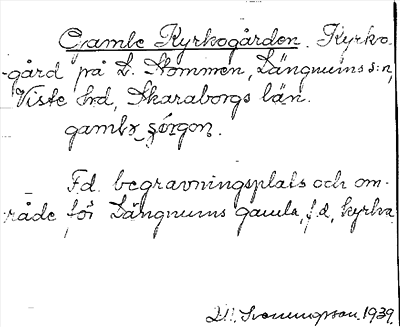 Gamle Kyrkogården. Kyrko-
gård på L. Stommen, Längnums s:n,
Viste hd, Skaraborgs län.
gamlɤ ɕórgon.
F.d. begravningsplats och om-
råde för Längnums gamla, f.d. kyrka
Svenungsson 1939.